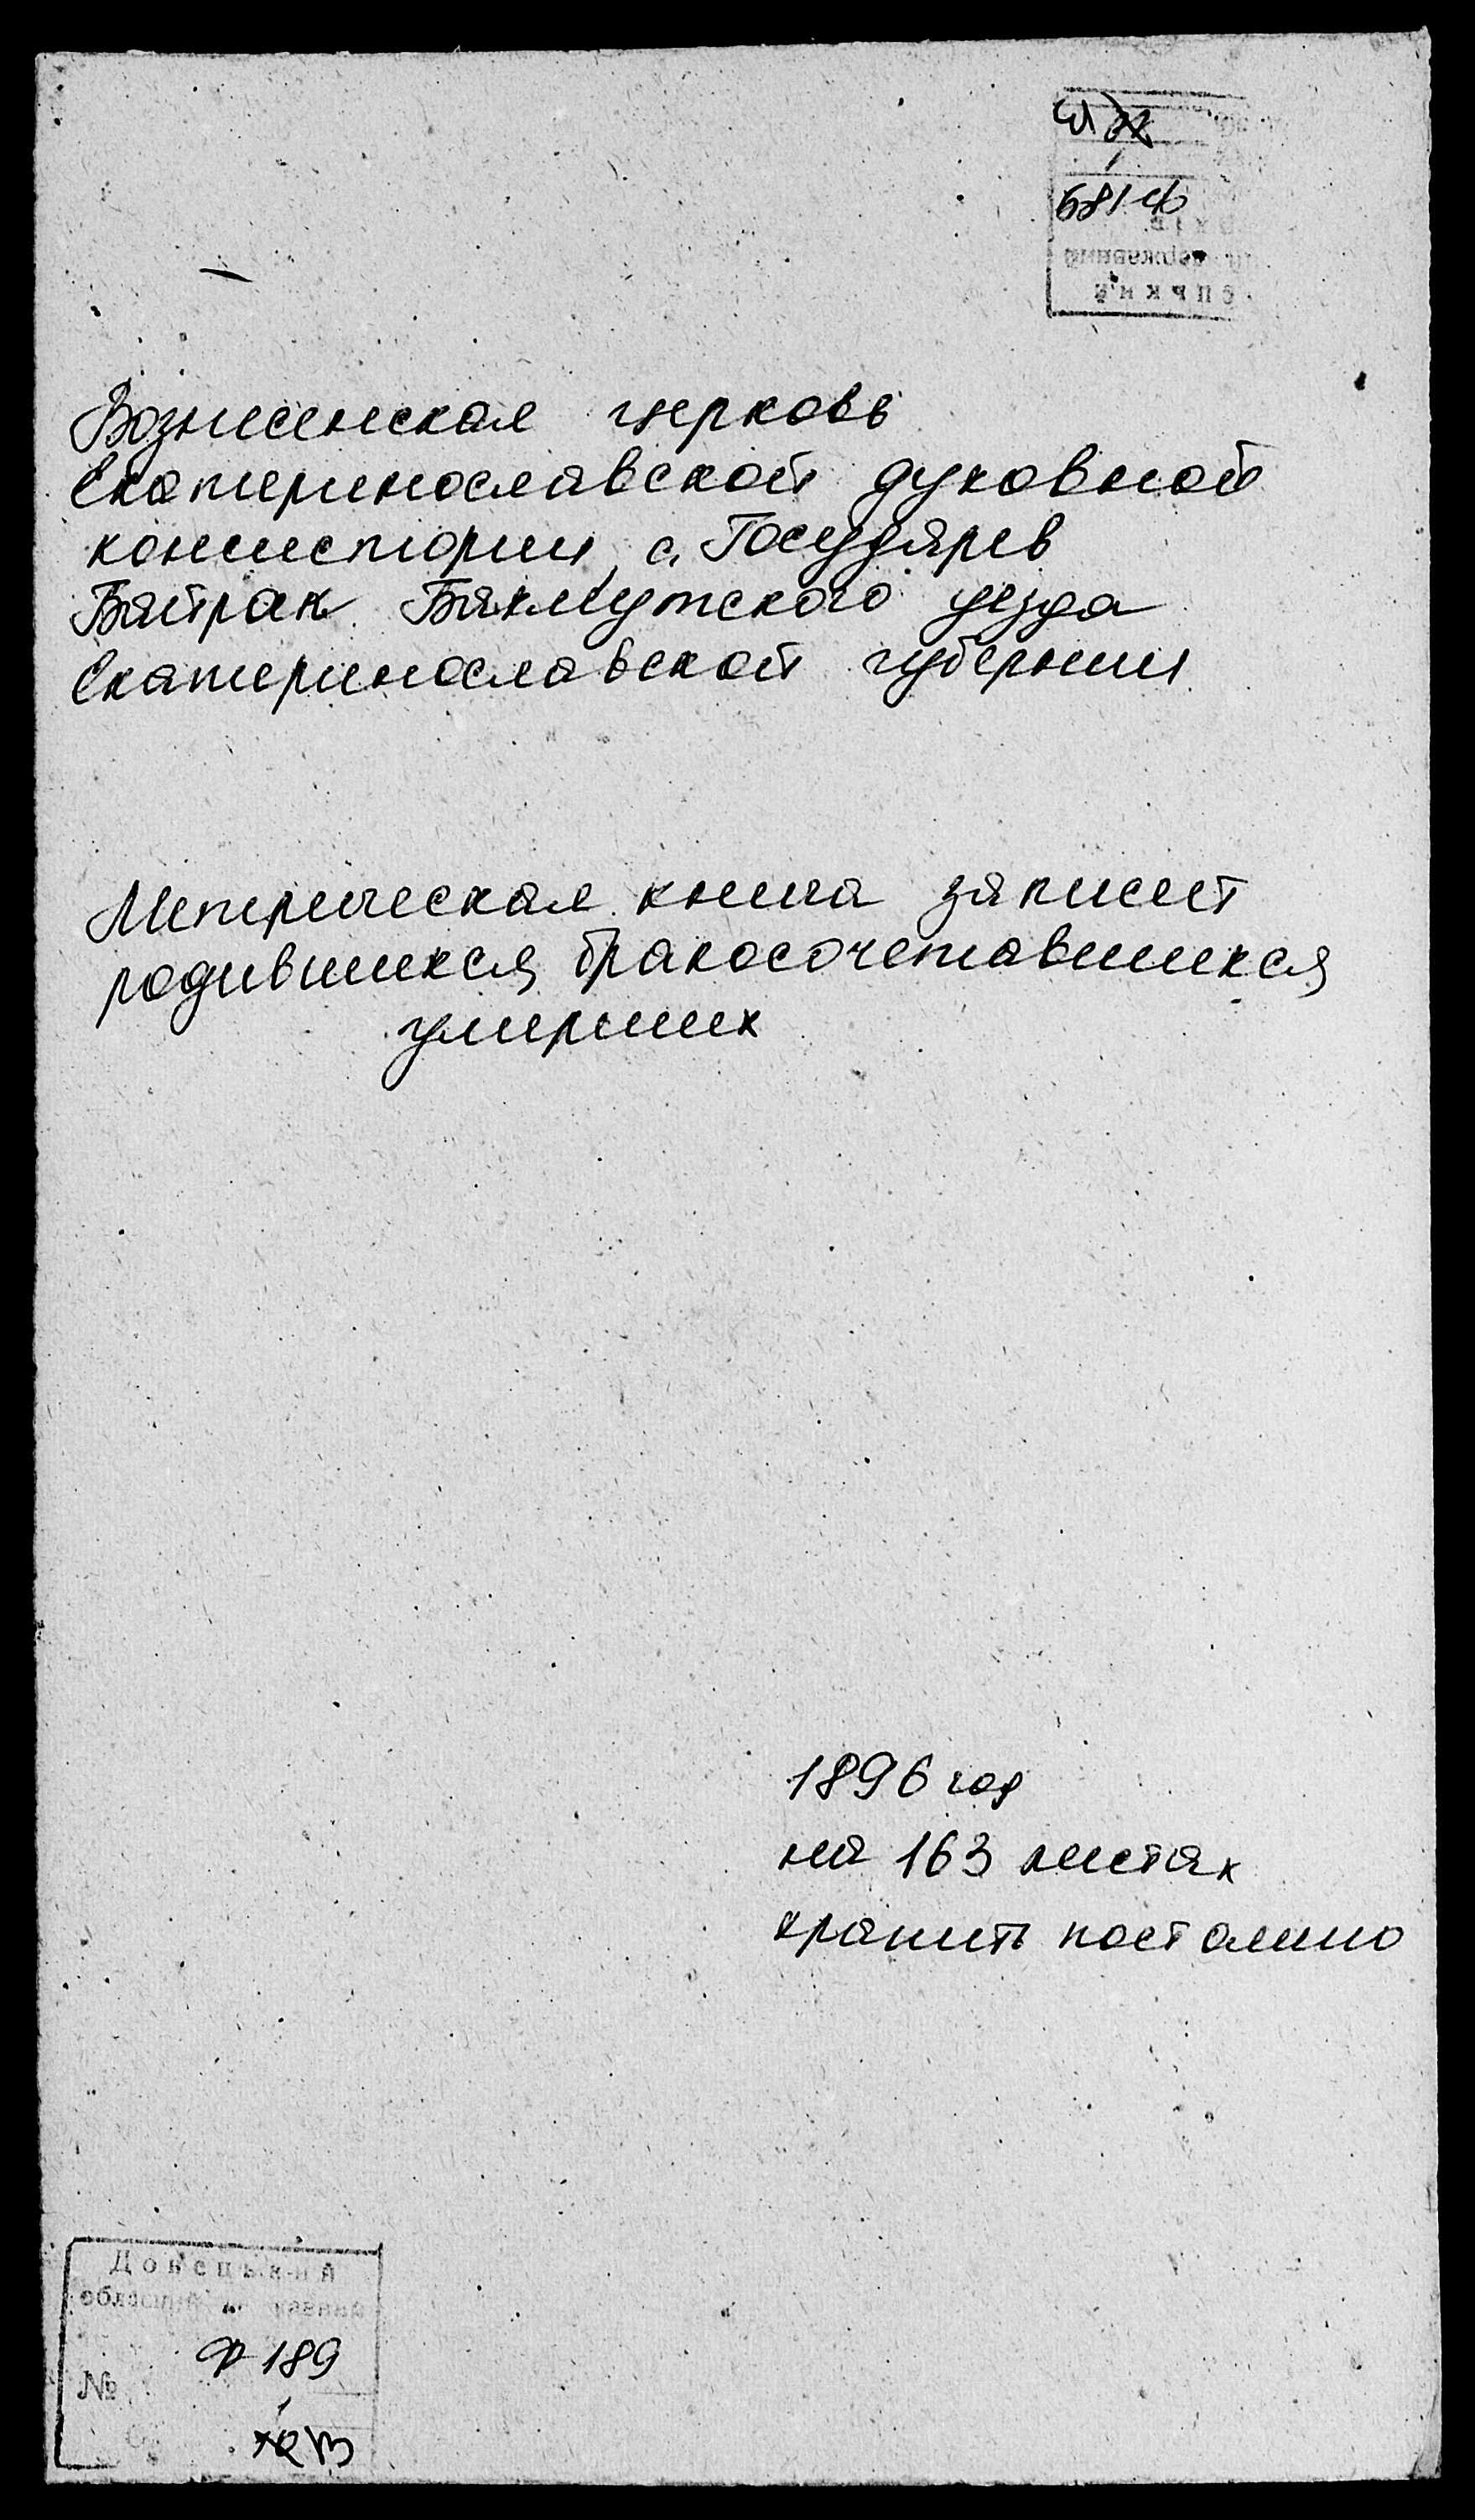 Вознесенская церковь
Екатеринославской духовной
консистории, с. Государев
Байрак Бахмутского уезда
Екатеринославской губернии
Метрическая книга записет
родившихся, бракосочетавшихся
умерших
1896 год
на 163 листах
хранить постоянно
Донецький
обласний
Ф 189
№
1